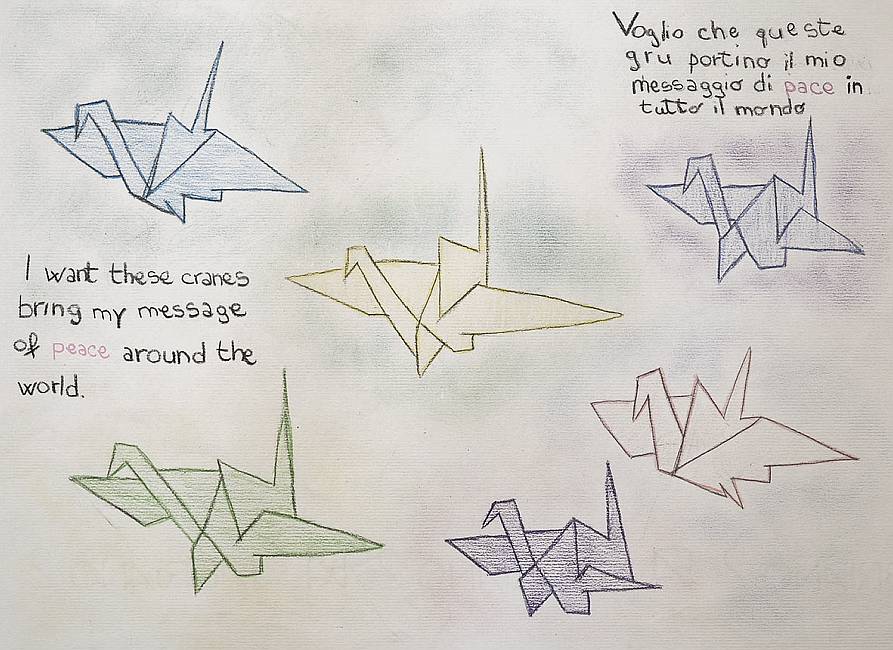 Voglio che queste
gru portino il mio
messaggio di pace in
tutto il mondo
I want these cranes
bring my message
of peace around the
world.